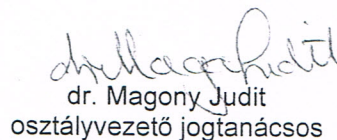 dr Magony Judit
dr. Magony Judit
osztályvezető jogtanácsos